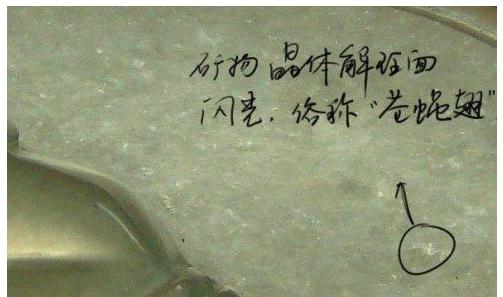 矿物晶体解理面
闪光.俗称"苍蝇翅"